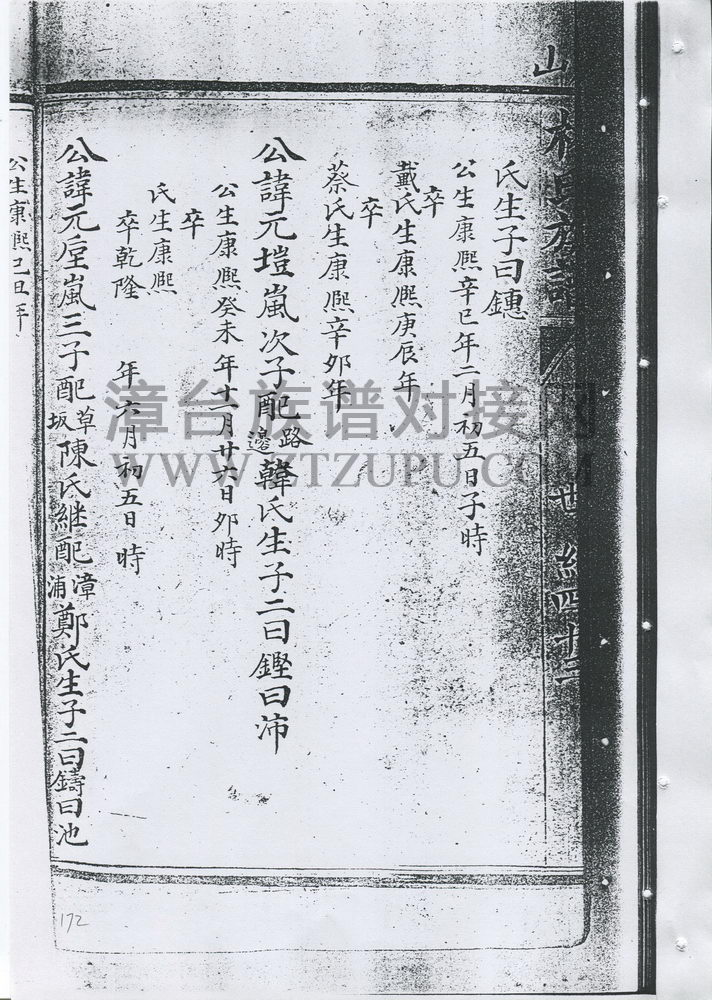 山
氏族譜
世 紀四十二
氏生子曰鏸
公生康熙辛巳年二月初五日子時
卒
戴氏生康熙庚辰年
卒
蔡氏生康熙辛夘年
公諱元塏嵐次子配路邊韓氏生子二曰鏗曰沛
公生康熙癸未年十一月廿六日夘時
卒
氏生康熙
卒乾隆 年六月初五日 時
公諱元垕嵐三子配草坂陳氏継配漳浦鄭氏生子二曰鑄曰池
公生康熙己丑年
漳台族谱对接网
WWW.ZTZUPU.COM
172